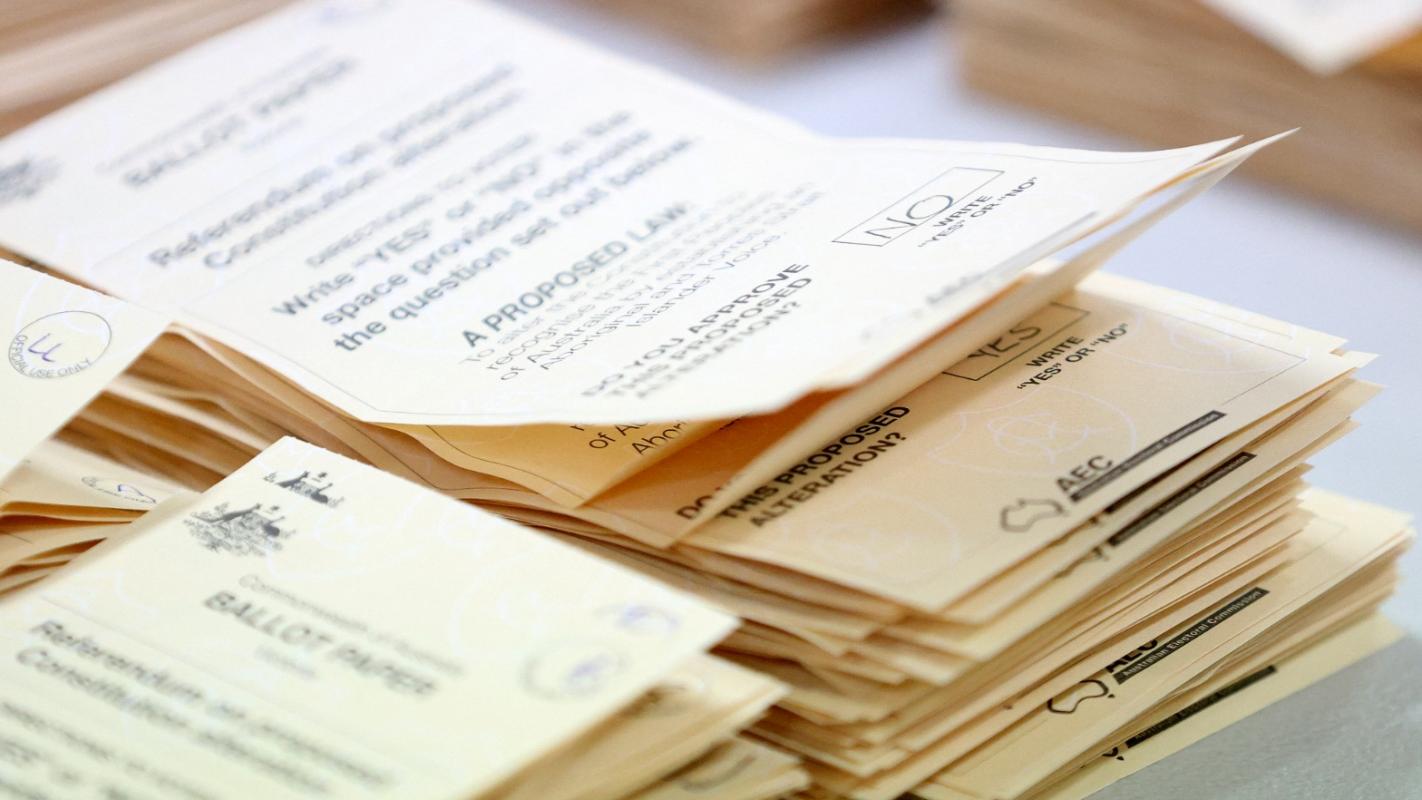 BALLOT PAPER
Referendum on proposed
Constitution alteration
DIRECTIONS TO VOTER
Write "YES" or "NO" in the
space provided opposite
the question set out below
A PROPOSED LAW:
to alter the Constitution to
recognise the First Peoples
of Australia by establishing
Aboriginal and Torres
Islander Voice.
DO YOU APPROVE
THIS PROPOSED
ALTERATION?
NO
WRITE
"YES" OR "NO"
OFFICIAL USE ONLY
of A
Abori
YES
WRITE
"YES" OR "NO"
DO
THIS PROPOSED
ALTERATION?
AEC
Australian Electoral Commission
Electoral Commission
AEC
Australian Electoral Commission
Commonwealth of
BALLOT PAPER
Referendum on proposed
Constitution alteration